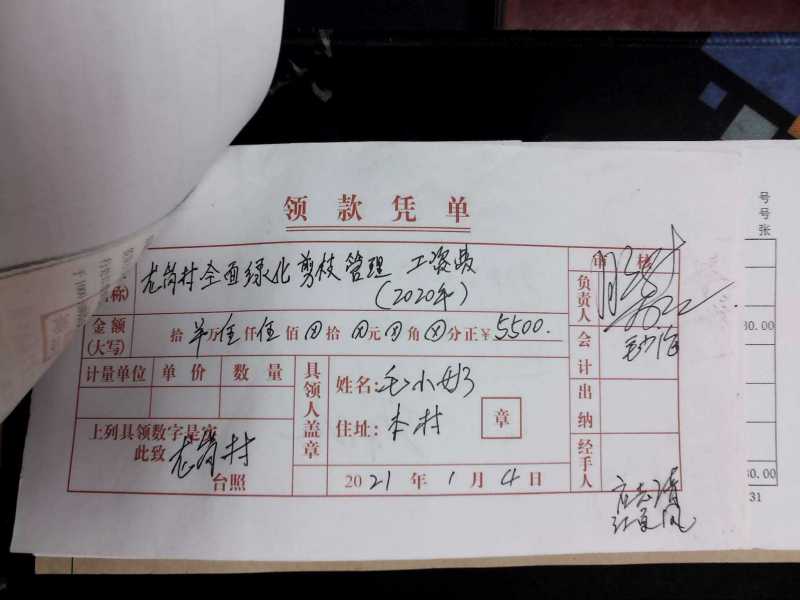 领款凭单
称)
龙岗村全面绿化剪枝管理 工资费
(2020年)
审 核
负责人
金额
(大写)
拾 万 伍 仟 伍 佰 拾 元 角 分正¥ 5500.
会计
计量单位 单价 数量
具领人盖章
姓名: 毛小妙
住址: 本村
章
出纳
上列具领数字是实
此致 龙岗村
台照
2021年1月4日
经手人
号
号
张
30.00
30.00
31